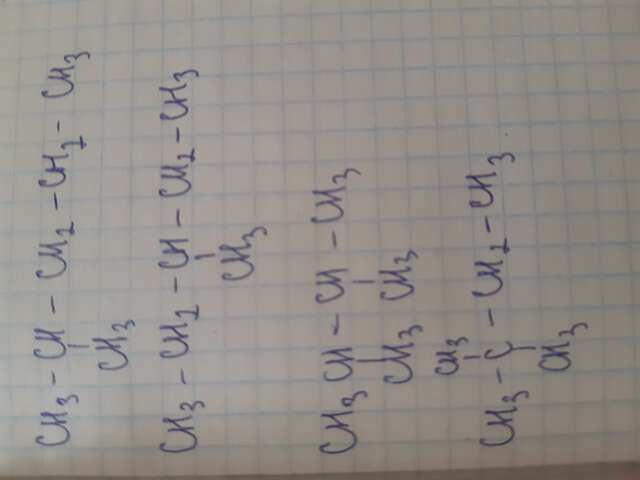 CH3 - CH - CH2 - CH2 - CH3
CH3
CH3 - CH2 - CH - CH2 - CH3
CH3
CH3 CH - CH - CH3
CH3 CH3
CH3
CH3 - C - CH2 - CH3
CH3